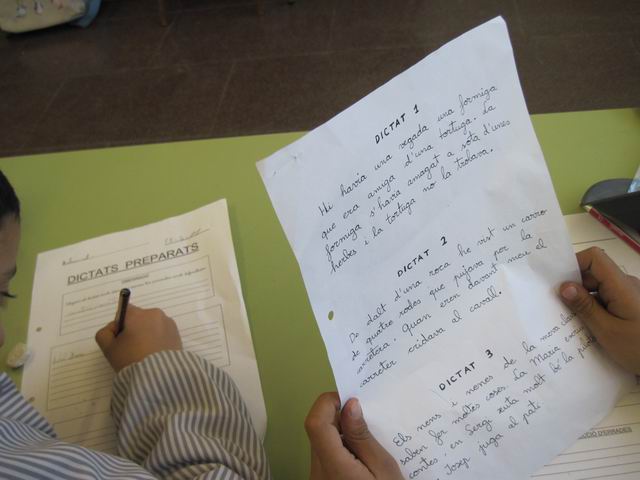 DICTAT 1
Hi havia una vegada una formiga
que era amiga d'una tortuga. La
formiga s'havia amagat a sota d'unes
herbes i la tortuga no la trobava.
DICTAT 2
De dalt d'una roca he vist un carro
de quatre rodes que pujava per la
carretera. Quan eren davant meu el
carreter cridava al cavall.
DICTAT 3
Els nens i nenes de la meva
saben fer moltes coses. La Maria
contes, en Sergi xuta molt bé la
Josep juga al pati.
DICTATS PREPARATS